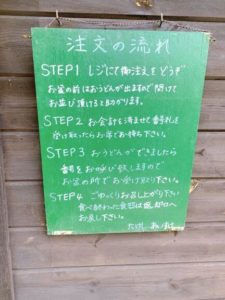 注文の流れ
STEP1 レジにて御注文をどうぞ
お盆の前はおうどんが出ますので開けて
お並び頂けると助かります。
STEP2 お会計を済ませて番号札を
受け取ったらお席でお待ち下さい。
STEP3 おうどんができましたら
番号をお呼び致しますので
お盆の所でお受け取り下さい。
STEP4 ごゆっくりお召し上がり下さい
食べ終わった食器は返却口へ
お戻し下さい。